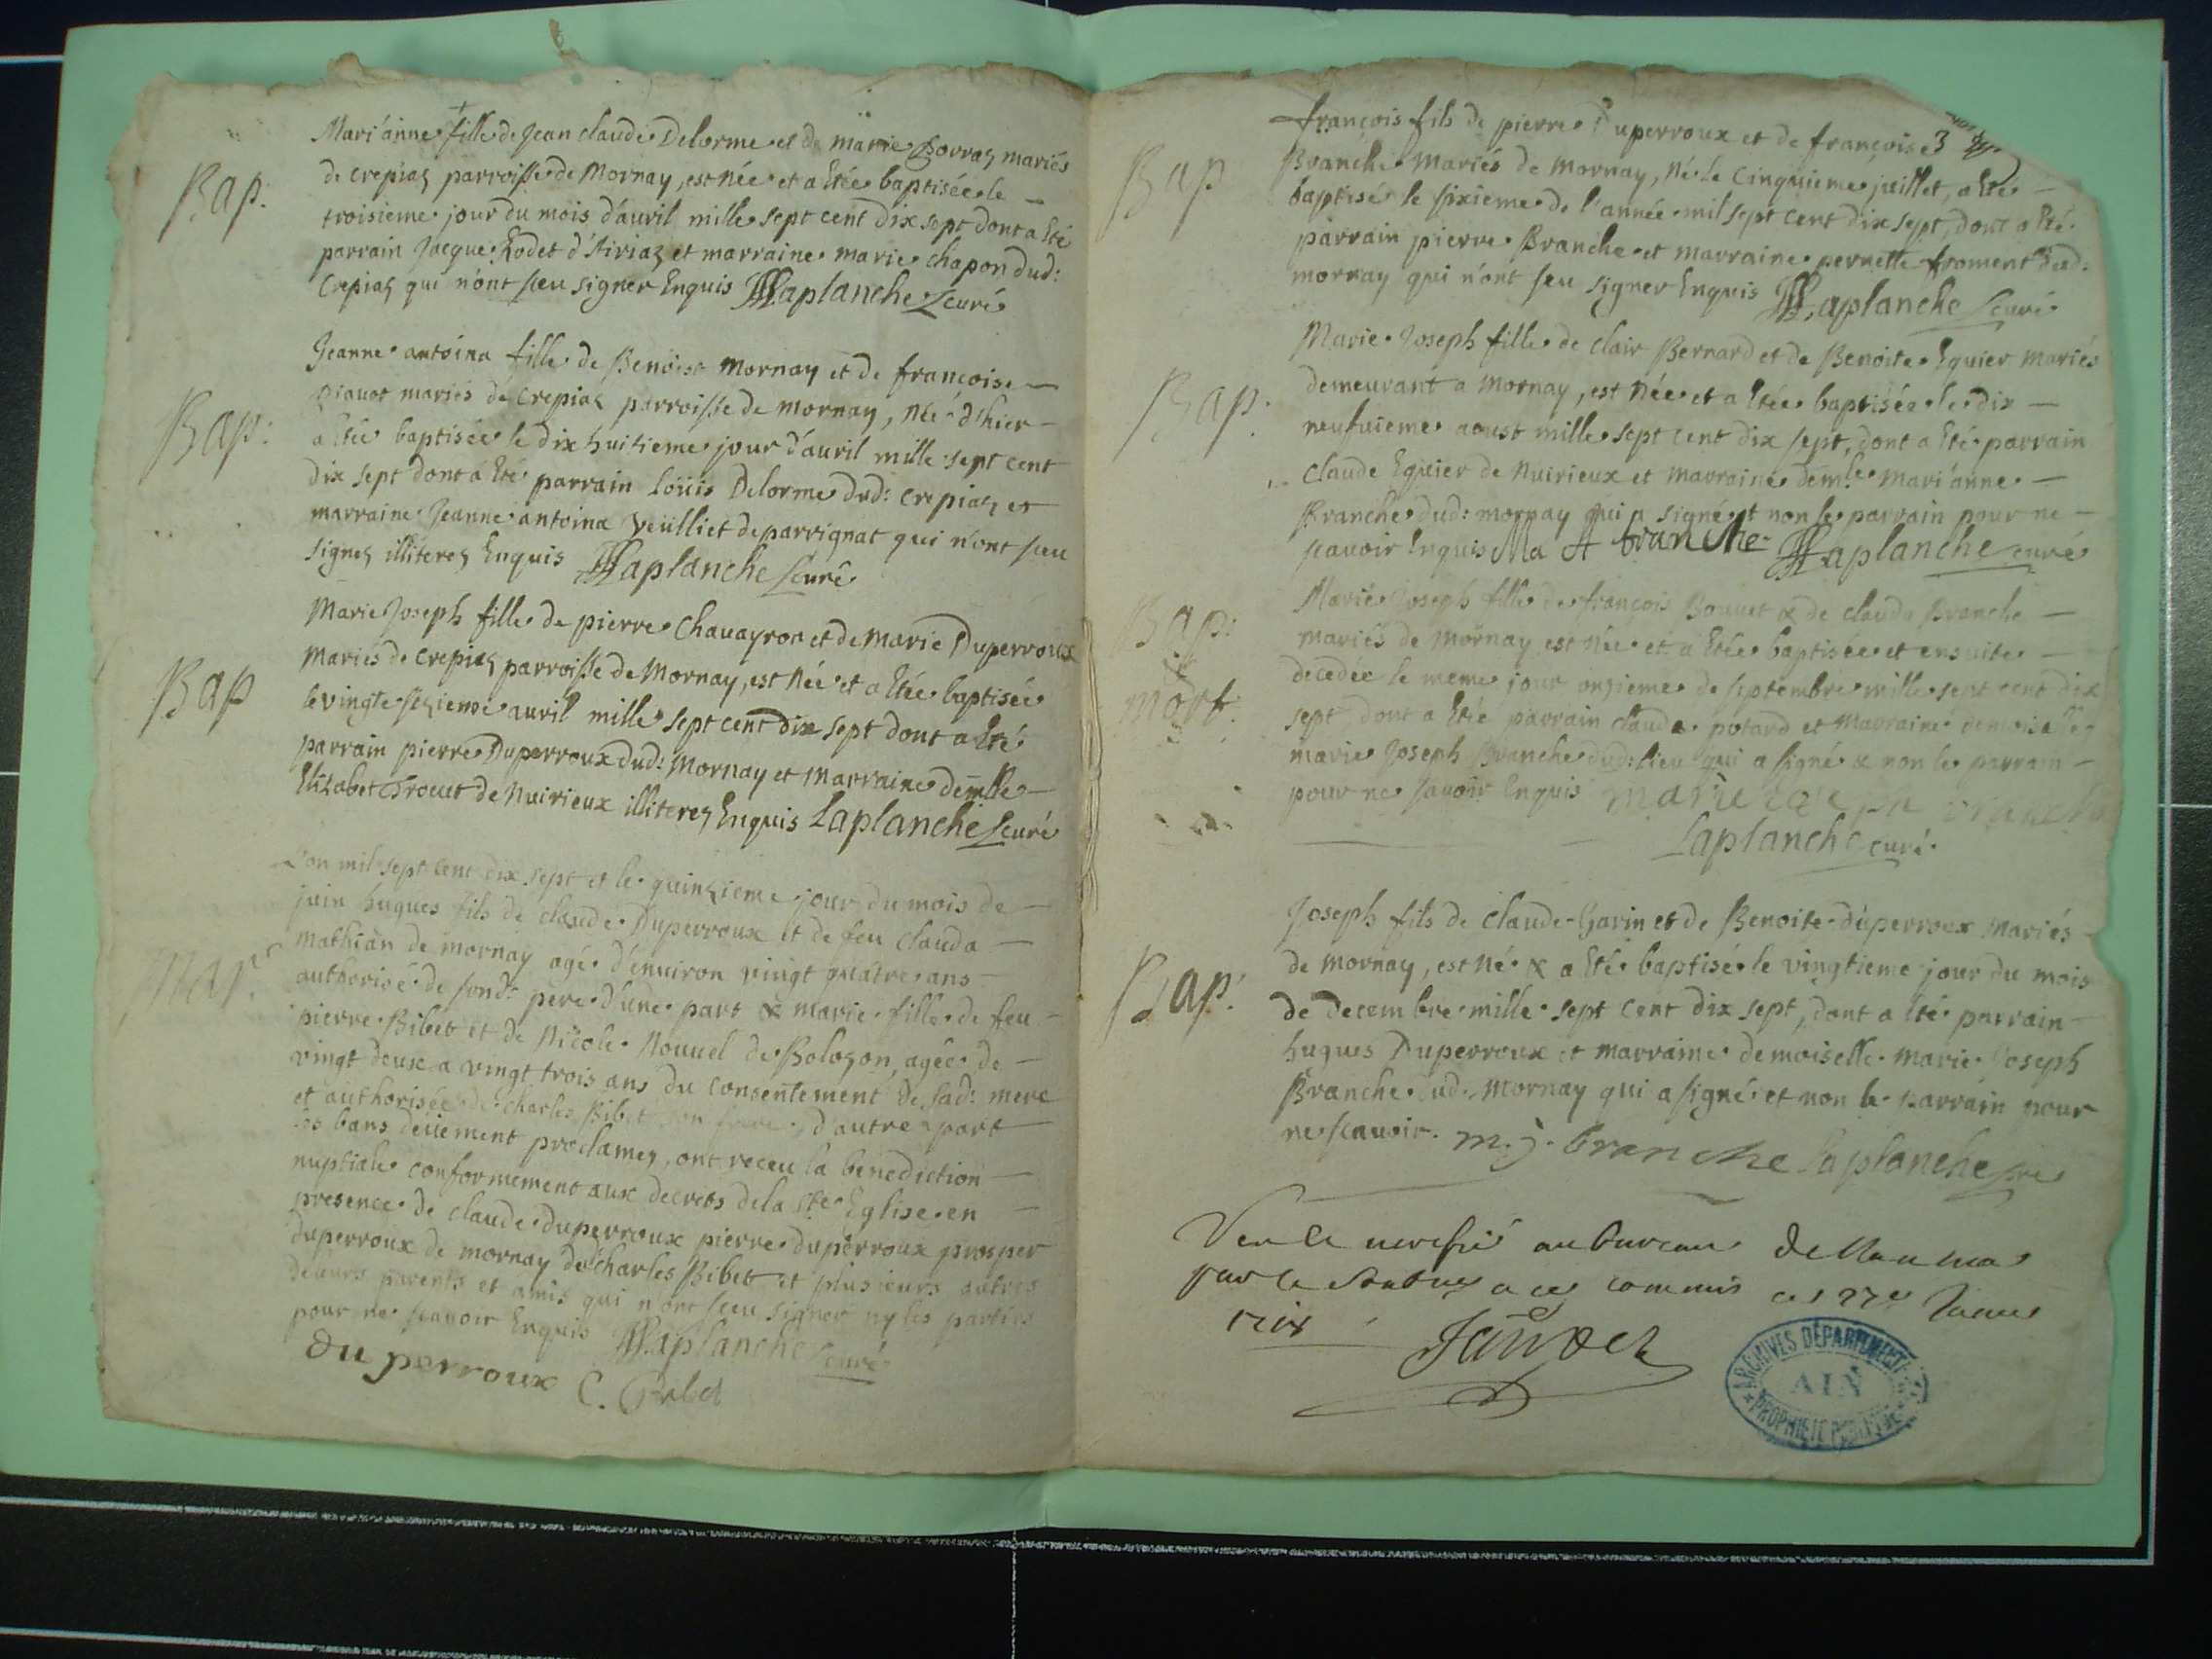 Mari'anne fille de Jean claude Delorme et de marie Borraz mariés
Bap:
de crepiaz parroisse de Mornay, est née et a Etée baptisée le
troisieme jour du mois d'auril mille sept cent dix sept dont a Eté
parrain Jacque Rodet d'Airiaz et marraine marie chapon dud:
Crepiaz qui n'ont sceu signer Enquis Laplanche Curé
Jeanne antoina fille de Benoist Mornay et de francoise
mariés de Crepiaz parroisse de Mornay, née d'hier
Bap:
a Etée baptisée le dix huitieme jour d'auril mille sept cent
dix sept dont a Eté parrain Loüis Delorme dud: crepiaz et
marraine Jeanne antoina veülliet de parrignat qui n'ont sceu
signez illiterez Enquis Laplanche Curé
Marie Joseph fille de pierre Chauayron et de Marie Duperroux
Mariés de crepiaz parroisse de Mornay, est Née et a Etée baptisée
Bap
le vingte sezieme auril mille sept cent dix sept dont a Eté
parrain pierre Duperroux dud: Mornay et Marraine demlle
Elizabet de Nuirieux illiterez Enquis Laplanche Curé
L'an mil sept cent dix sept et le quinzieme jour du mois de
juin hugues fils de claude Duperroux et de feu clauda
Mathian de mornay agé d'enuiron vingt quatre ans
Mar:
authorisé de sond: pere d'une part & marie fille de feu
pierre Bibet et de Nicole Nouuel de Bolozon, agée de
vingt deux a vingt trois ans du consentement de sad: mere
et authorisée de charles Bibet son frere d'autre part
les bans deüement proclamez, ont receu la benediction
nuptiale conformement aux decrets de la Ste Eglise en
presence de claude duperroux pierre duperroux prosper
duperroux de mornay de charles Bibet et plusieurs autres
de leurs parents et amis qui n'ont sceu signer ny les parties
pour ne scauoir Enquis Laplanche Curé
du perroux C.
3
françois fils de pierre Duperroux et de françoise
Bap
Branche Mariés de Mornay, Né le Cinquieme juillet, a Eté
baptisé le sixieme de l'année mil sept cent dix sept, dont a Eté
parrain pierre Branche et marraine pernette froment dud:
mornay qui n'ont sceu signer Enquis Laplanche Curé
Marie Joseph fille de clair Bernard et de Benoite Eguier Mariés
Bap:
demeurant a Mornay, est Née et a Etée baptisée le dix
neufuieme aoust mille sept cent dix sept, dont a Eté parrain
claude Eguier de Nuirieux et Marraine demle Mari'anne
Branche dud: mornay qui a signé et non le parrain pour ne
scauoir Enquis Ma A branche Laplanche curé
Bap:
Marie Joseph fille de françois Bouuet & de clauda Branche
mariés de Mornay est Née et a Etée baptisée et ensuite
&
mort:
decedée le meme jour onzieme de septembre mille sept cent dix
sept dont a Eté parrain claude potard et Marraine demoiselle
marie Joseph Branche dud: lieu qui a signé & non le parrain
pour ne scauoir Enquis
Laplanche curé
Joseph fils de claude Garin et de Benoite duperroux Mariés
Bap:
de Mornay, est Né & a Eté baptisé le vingtieme jour du mois
de decembre mille sept cent dix sept, dont a Eté parrain
hugues Duperroux et marraine demoiselle marie Joseph
Branche dud: Mornay qui a signé et non le parrain pour
ne scauoir. m. j. branche Laplanche
Veu le au bureau de
par le commis ce 27e
ARCHIVES DÉPARTEMENTALES
AIN
PROPRIÉTÉ PUBLIQUE